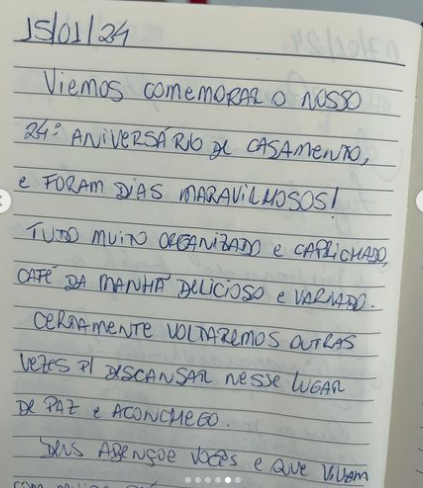 15/01/24
Viemos comemorar o nosso
24º aniversário de casamento,
e foram dias maravilhosos!
Tudo muito organizado e caprichado,
café da manhã delicioso e variado.
Certamente voltaremos outras
vezes p/ descansar nesse lugar
de paz e aconchego.
Deus abençoe vocês e que vivam
com